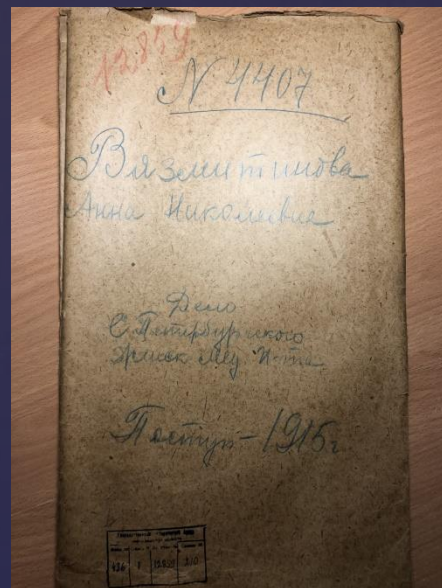 12859
N 4407
Вязмитинова
Анна Николаевна
Дело
С.Петербургского
Женск Мед Инта
Поступ - 1915г